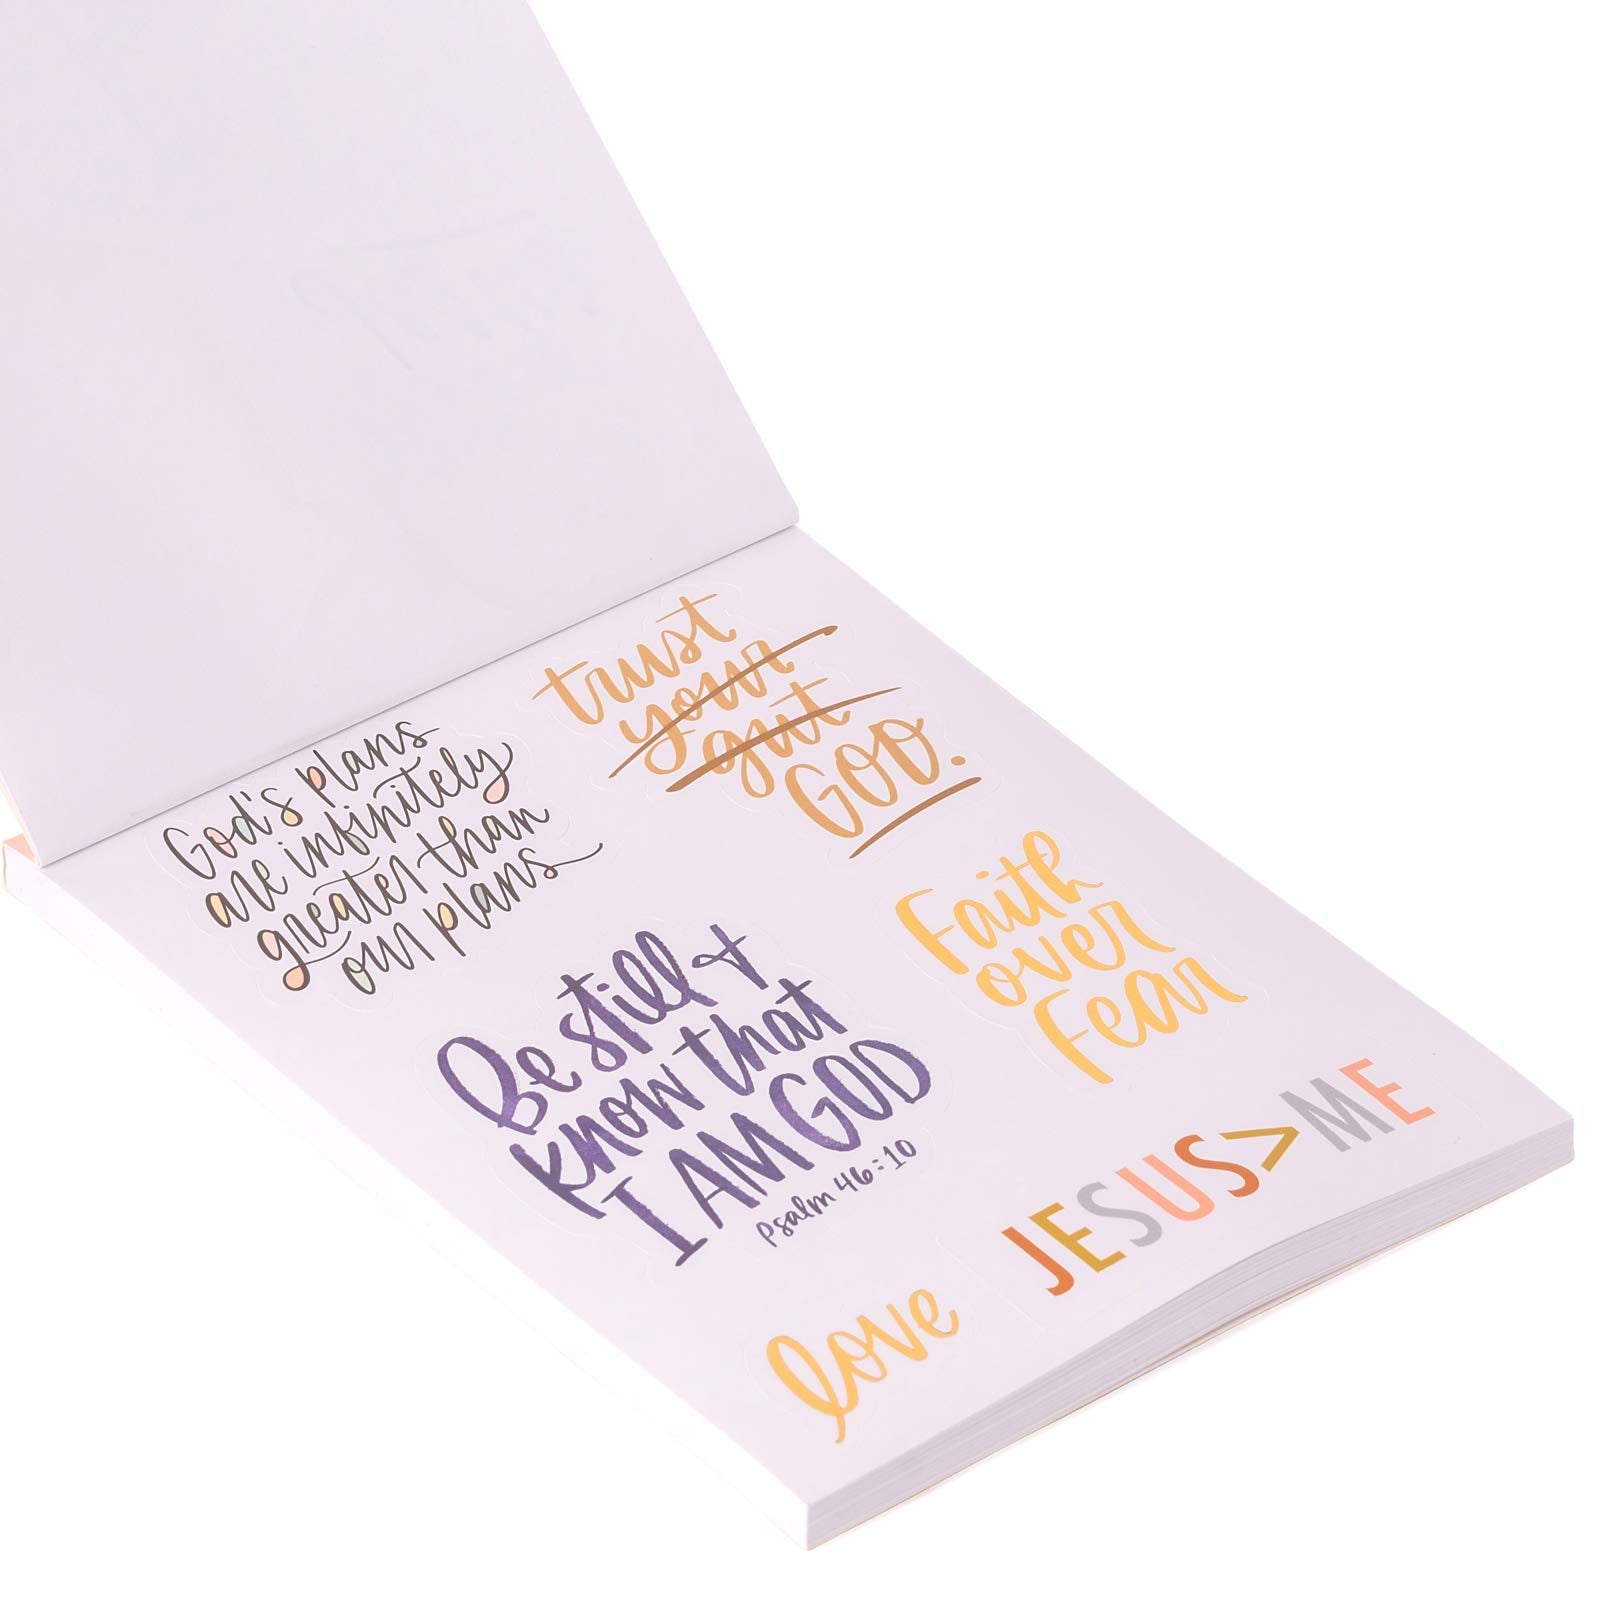 trust
your
gut
GOD.
God's plans
are infinitely
greater than
our plans
Faith
over
Fear
Be still +
know that
I AM GOD
Psalm 46:10
JESUS>ME
love